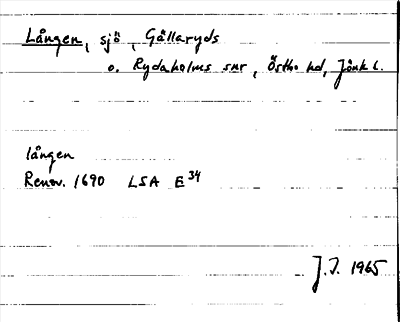 Lången, sjö, Gällaryds
o. Rydaholms snr, Östbo hd, Jönk l.
lången
Renov. 1690 LSA E34
J.I. 1965